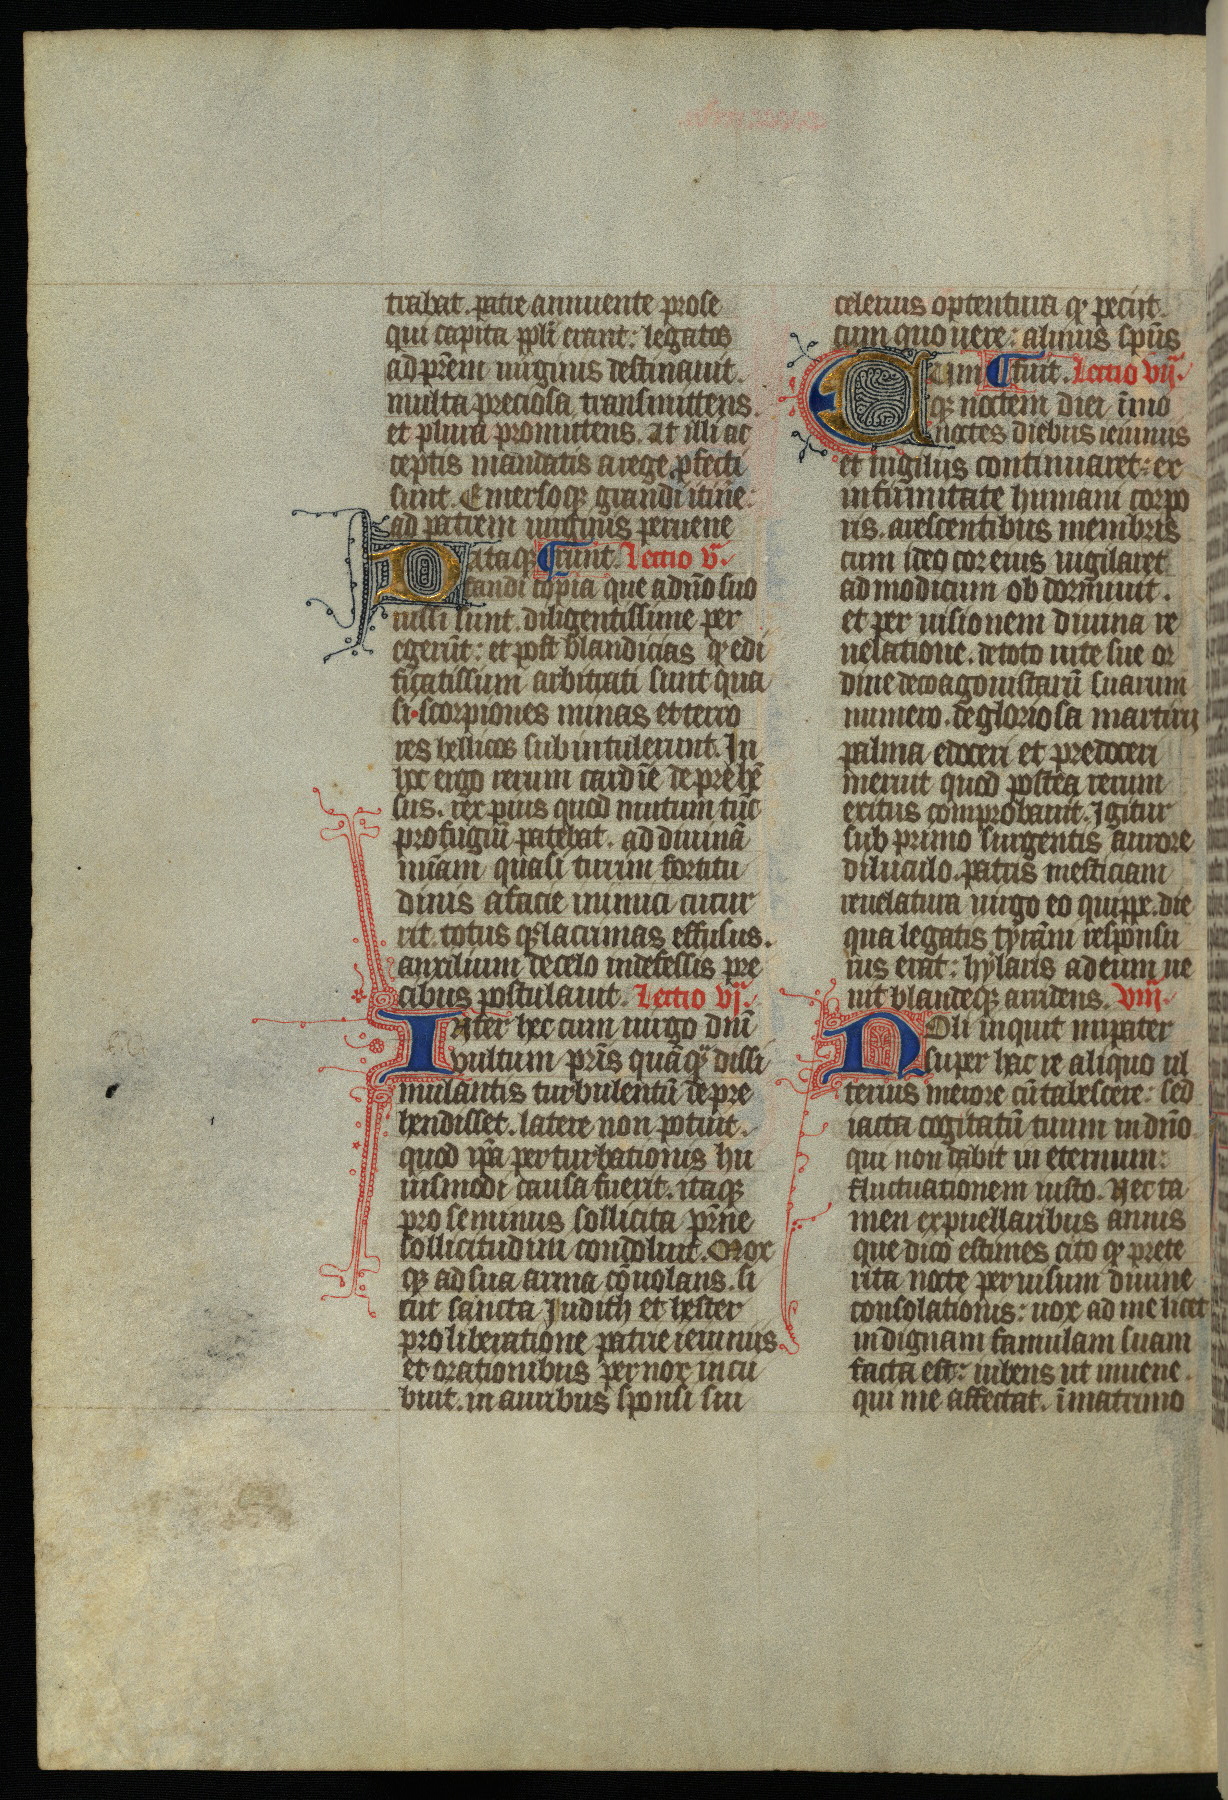 trabat. patre annuente prose
qui capita ppl̄i erant: legatos
ad pr̄em uirginis destinauit.
multa preciosa transmittens.
et plura promittens. At illi ac
ceptis mandatis a rege ꝓfecti
sunt. Emersoqꝫ grandi itīne:
ad patrem uirginis peruene
Dataqꝫ ¶runt. Lectio v̄.
fandi copia que a dn̄o suo
iussi sunt. diligentissime per
egerūt: et post blandicias qͣ edi
ficatissimū arbitrati sunt qua
si scorpiones minas et terro
res bellicos subintulerunt. In
hoc ergo rerum cardīe depreħē
sus. rex pius quod mutum tūc
profugiū patebat. ad diuinā
mīam quasi turrim fortitu
dinis a facie inimici cucur
rit. totus qꝫ lacrimas effusus.
auxilium de celo indefessis pre
cibus postulauit. Lectio vj̄.
Inter hec cum uirgo dn̄i
uultum pr̄is quāqꝫ dissi
mulantis turbulentū depre
hendisset. latere non potuit.
quod ip̄a perturbationis hu
iusmodi causa fuerit. itaqꝫ
pro se minus sollicita pr̄ne
sollicitudini condoluit. Mox
qꝫ ad sua arma cōuolans. si
cut sancta Judith et hester
pro liberatione patrie ieiuniis
et orationibus pernox incu
buit. in auribus sponsi sui
celerius optentura qͣ pecijt.
cum quo uere: almus sp̄us
Cum ¶fuit. Lectio vij̄.
qꝫ noctem diei īmo
noctes diebus ieiuniis
et uigiliis continuaret: ex
infirmitate humani corpo
ris. arescentibus membris
cum ideo cor eius uigilaret
ad modicum obdormiuit.
et per uisionem diuina re
uelatione. de toto uite sue or
dine de coagonistarū suarum
numero. de gloriosa martirii
palma edoceri et predoceri
meruit quod postea rerum
exitus comprobauit. Igitur
sub primo surgentis aurore
diluculo. patris mesticiam
reuelatura uirgo eo quippe. die
qua legatis tyrām responsu
rus erat: hylaris ad eum ue
nit blandeqꝫ arridens. viij̄.
Noli inquit mi pater
super hac re aliquo ul
terius merore cū tabescere: sed
iacta cogitatū tuum in dn̄o
qui non dabit in eternum:
fluctuationem iusto. Nec ta
men ex puellaribus annis
que dico estimes cito qͣ prete
rita nocte per uisum diuine
consolationis: uox ad me licet
indignam famulam suam
facta est: iubens ut iuuene.
qui me affectat. ī matrimo